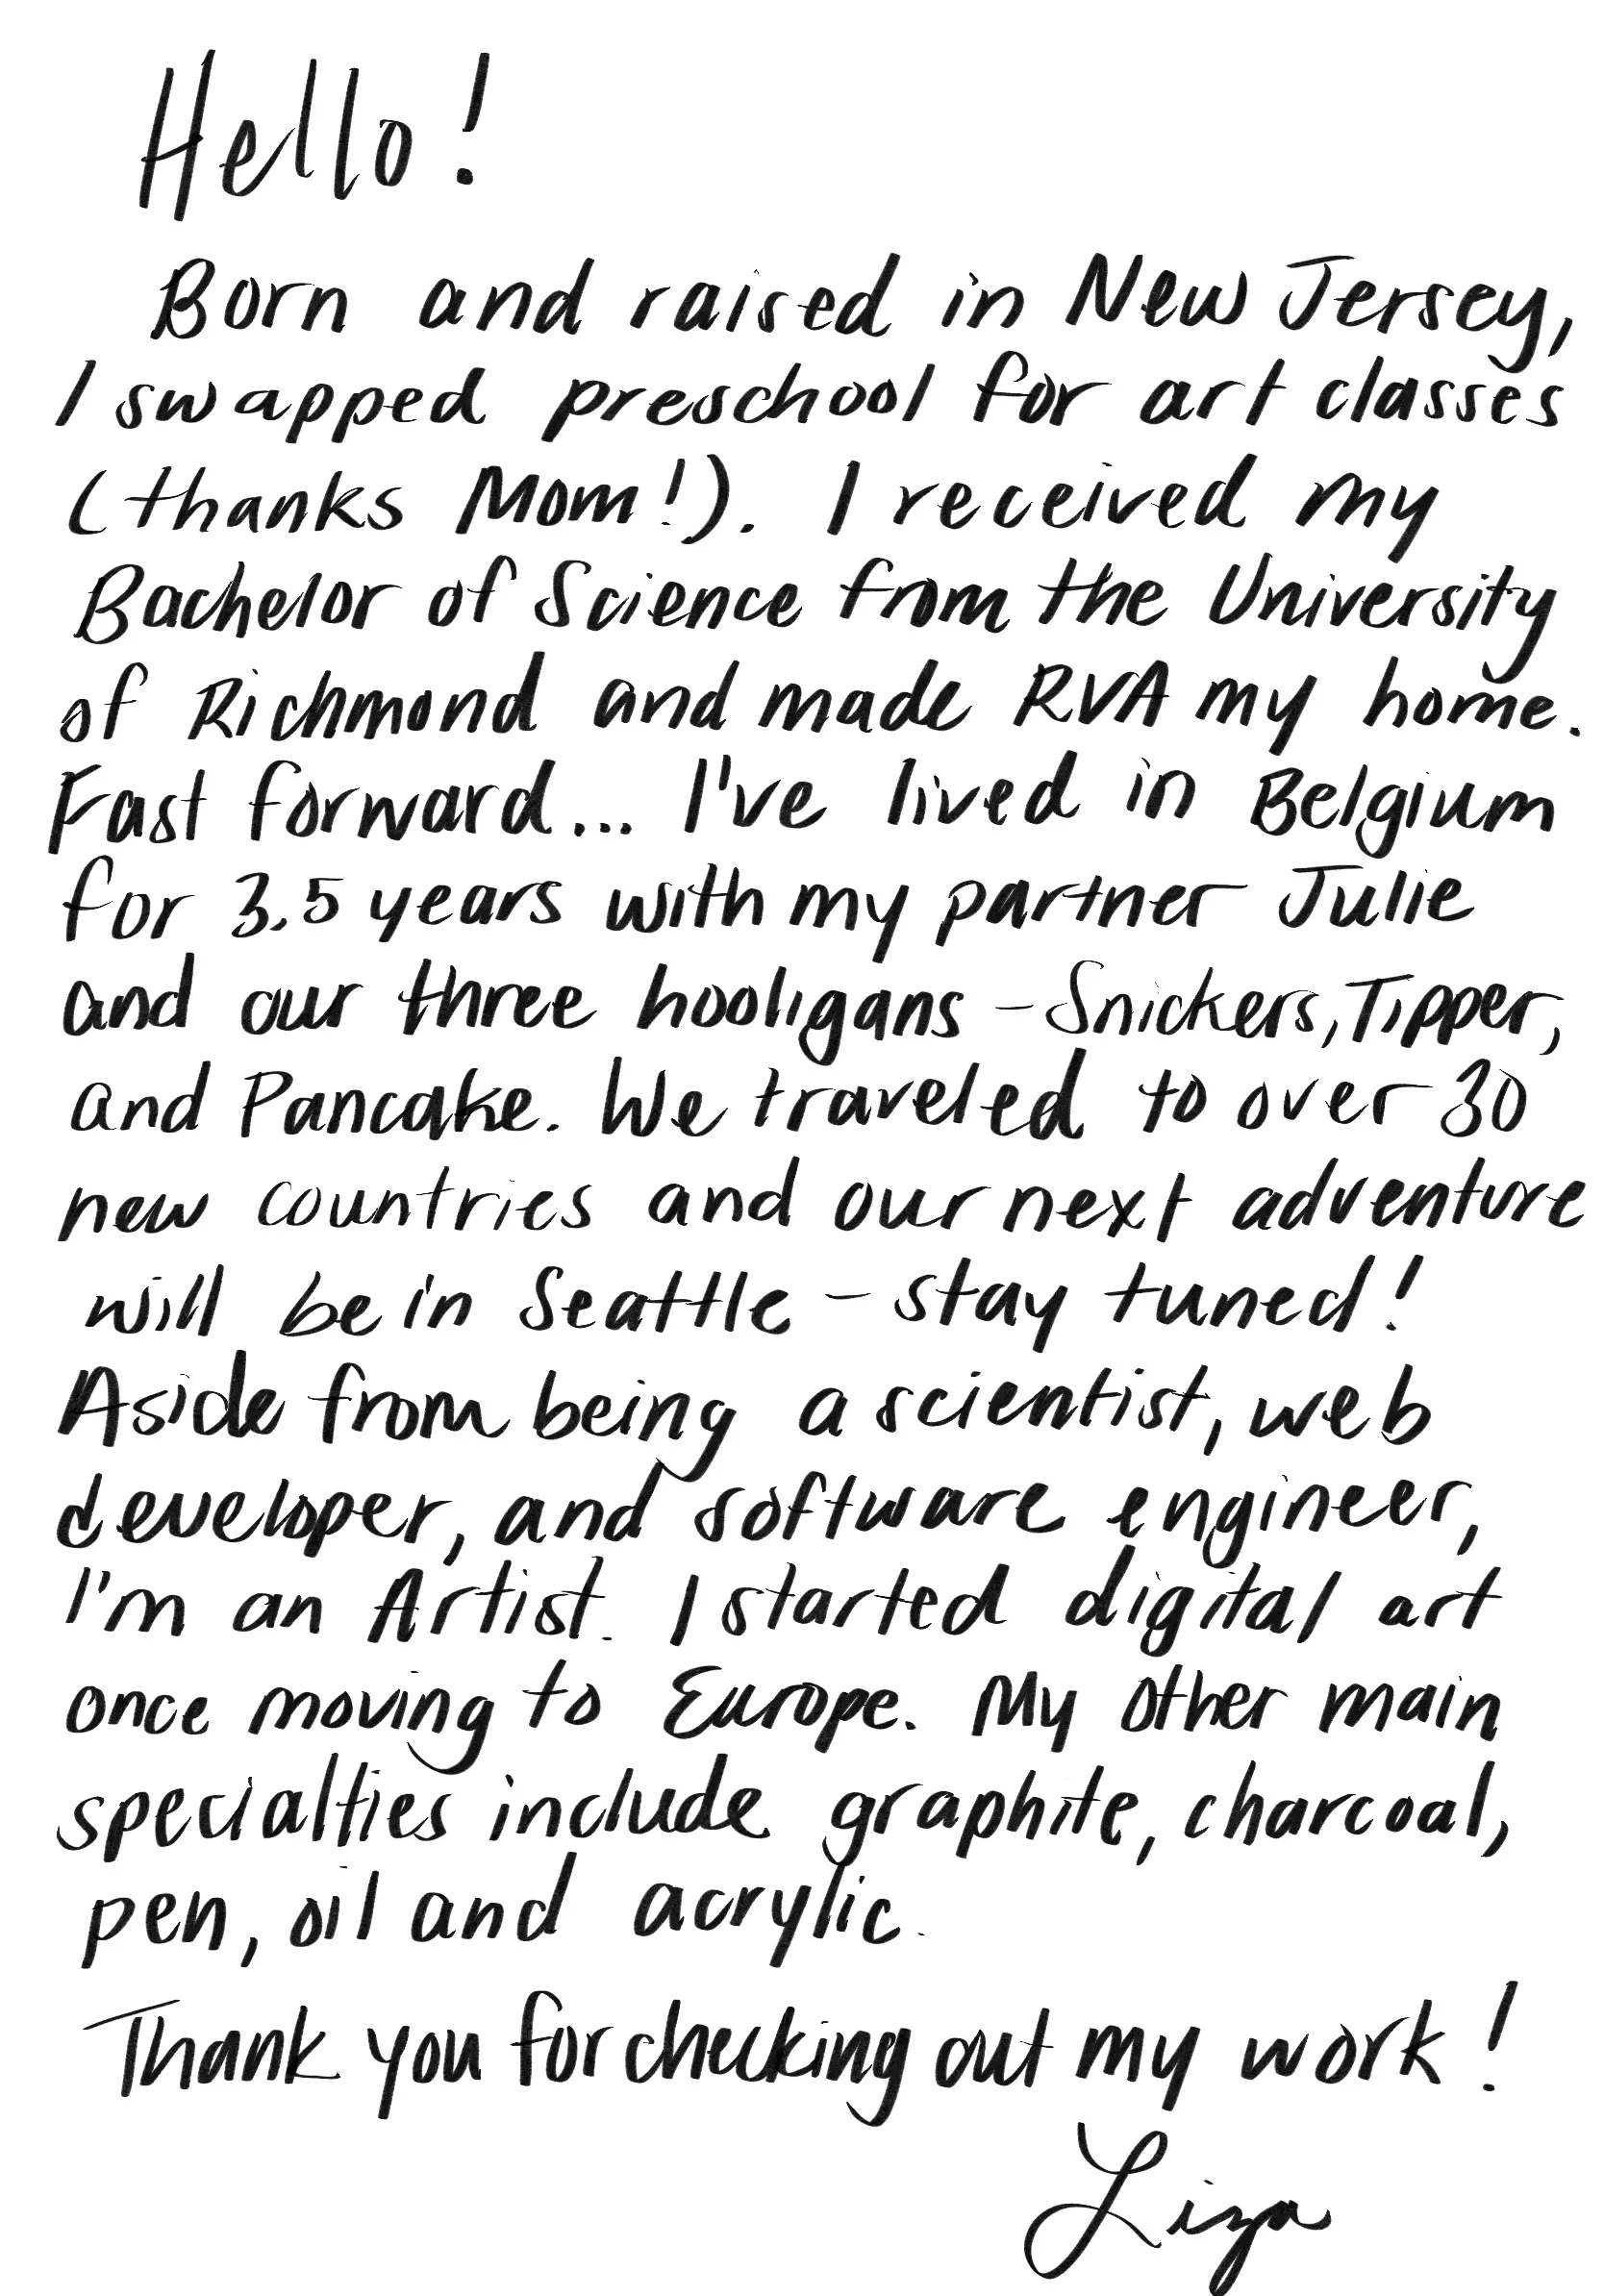 Hello!
Born and raised in New Jersey,
I swapped preschool for art classes
(thanks Mom!). I received my
Bachelor of Science from the University
of Richmond and made RVA my home.
Fast forward... I've lived in Belgium
for 3.5 years with my partner Julie
and our three hooligans - Snickers, Tipper,
and Pancake. We traveled to over 30
new countries and our next adventure
will be in Seattle - stay tuned!
Aside from being a scientist, web
developer, and software engineer,
I'm an Artist. I started digital art
once moving to Europe. My other main
specialties include graphite, charcoal,
pen, oil and acrylic.
Thank you for checking out my work!
Liza